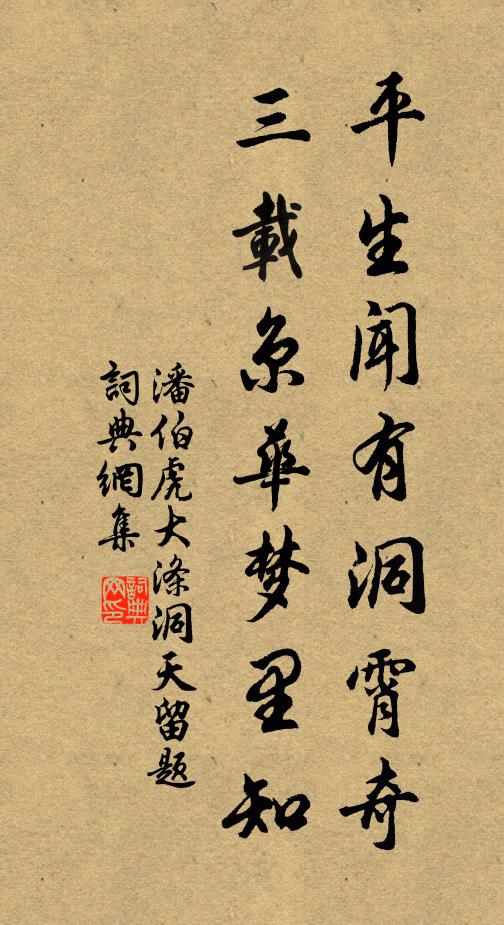 平生聞有洞霄奇
三載京華梦里知
潘伯虎大滌洞天留題
詞典網集
詞典网印